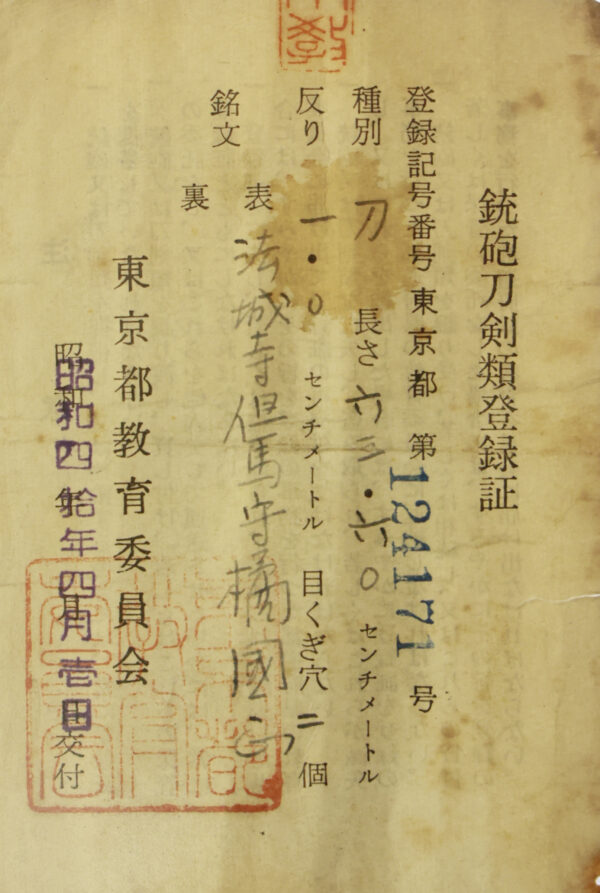 銃砲刀剣類登録証
登録記号番号 東京都 第124171号
種別 刀 長さ 六三・六〇 センチメートル
反り 一・〇 センチメートル 目くぎ穴 二 個
銘文 表 法城寺但馬守橘國正
裏
東京都教育委員会
昭和四拾年四月壱日交付